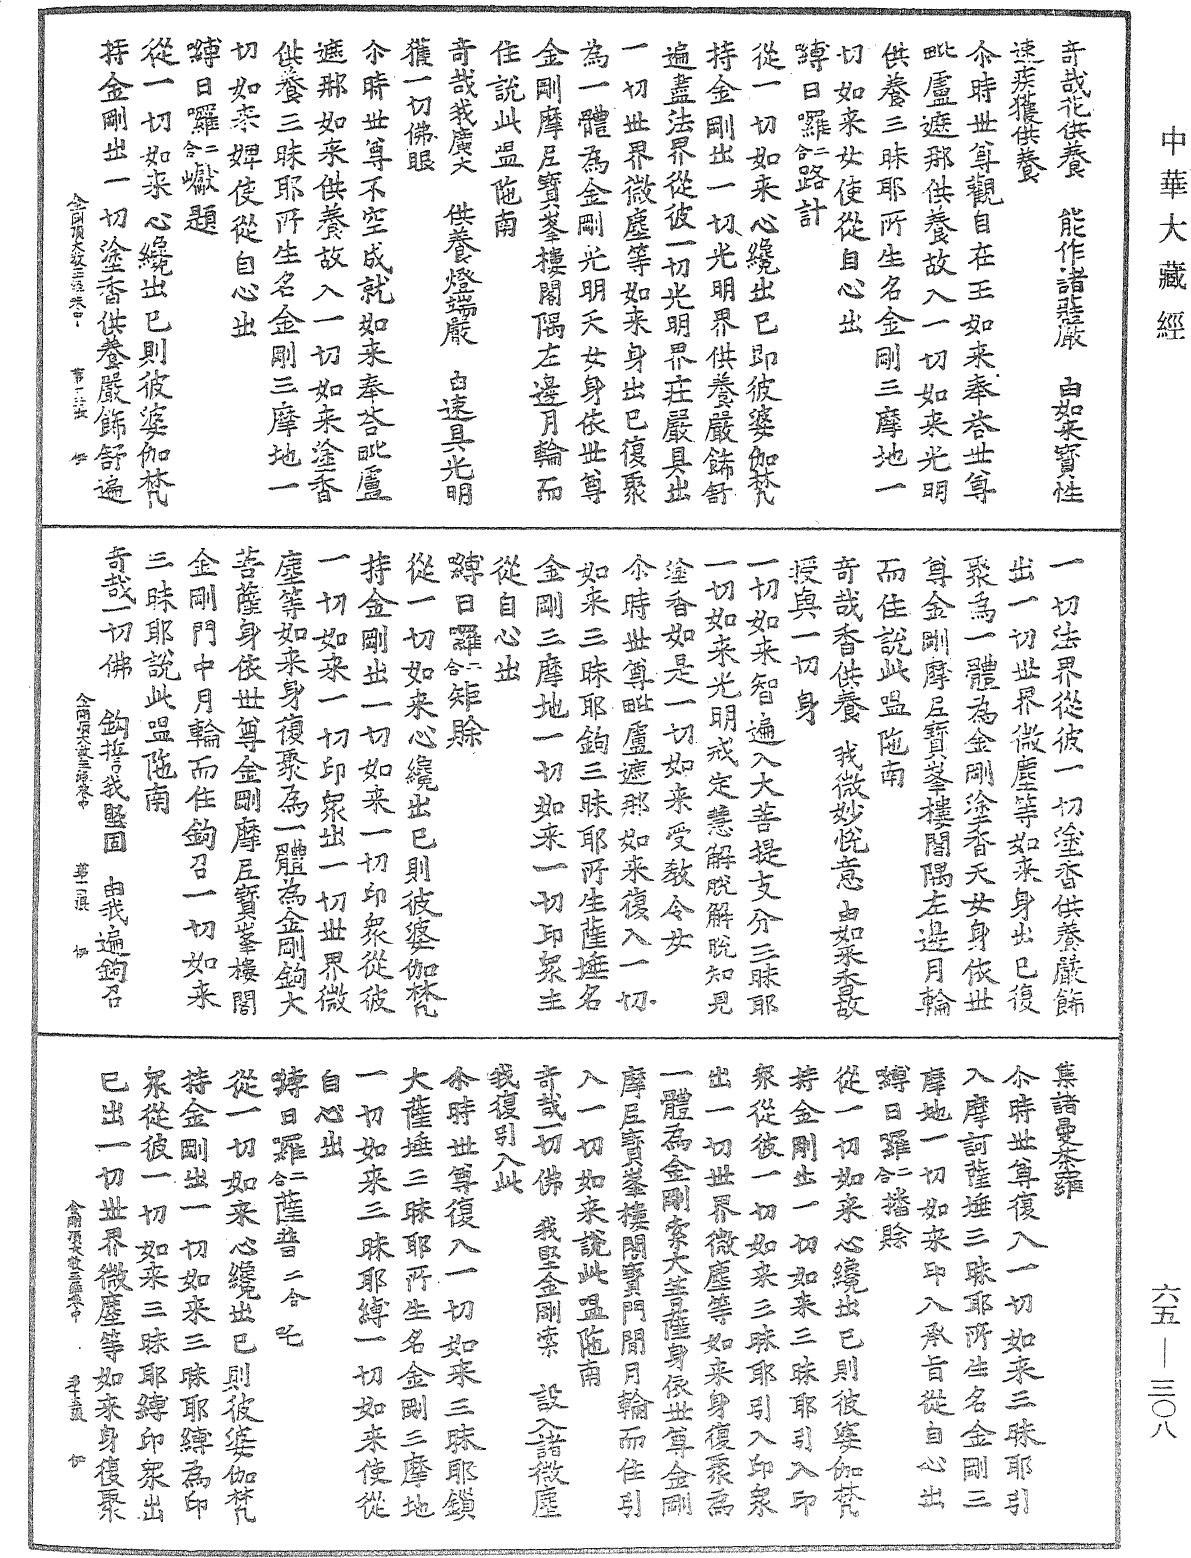 中華大藏經
奇哉花供養　能作諸莊嚴　由如来寶性
速疾獲供養
尒時世尊觀自在王如来奉荅世尊
毗盧遮那供養故入一切如来光明
供養三昧耶所生名金剛三摩地一
切如来女使從自心出
嚩日囉二合路計
從一切如来心纔出已即彼婆伽梵
持金剛出一切光明界供養嚴飾舒
遍盡法界從彼一切光明界莊嚴具出
一切世界微塵等如来身出已復聚
為一體為金剛光明天女身依世尊
金剛摩尼寶峯樓閣隅左邊月輪而
住說此嗢陁南
奇哉我廣大　供養燈端嚴　由速具光明
獲一切佛眼
尒時世尊不空成就如来奉荅毗盧
遮那如来供養故入一切如来塗香
供養三昧耶所生名金剛三摩地一
切如来婢使從自心出
嚩日囉二合巘題
從一切如来心纔出已則彼婆伽梵
持金剛出一切塗香供養嚴飾舒遍
金剛頂大教王經卷中
伊
一切法界從彼一切塗香供養嚴飾
出一切世界微塵等如来身出已復
聚為一體為金剛塗香天女身依世
尊金剛摩尼寶峯樓閣隅左邊月輪
而住說此嗢陁南
奇哉香供養　我微妙悅意　由如来香故
授與一切身
一切如来智遍入大菩提支分三昧耶
一切如来光明戒定慧解脫解脫知見
塗香如是一切如来受教令女
尒時世尊毗盧遮那如来復入一切
如来三昧耶鉤三昧耶所生薩埵名
金剛三摩地一切如来一切印衆主
從自心出
嚩日囉二合矩賒
從一切如来心纔出已則彼婆伽梵
持金剛出一切如来一切印衆從彼
一切如来一切印衆出一切世界微
塵等如来身復聚為一體為金剛鉤大
菩薩身依世尊金剛摩尼寶峯樓閣
金剛門中月輪而住鉤召一切如来
三昧耶說此嗢陁南
奇哉一切佛　鉤誓我堅固　由我遍鉤召
金剛頂大教王經卷中
伊
集諸曼荼羅
尒時世尊復入一切如来三昧耶引
入摩訶薩埵三昧耶所生名金剛三
摩地一切如来印入承旨從自心出
嚩日囉二合播賒
從一切如来心纔出已則彼婆伽梵
持金剛出一切如来三昧耶引入印
衆從彼一切如来三昧耶引入印衆
出一切世界微塵等如来身復聚為
一體為金剛索大菩薩身依世尊金剛
摩尼寶峯樓閣寶門間月輪而住引
入一切如来說此嗢陁南
奇哉一切佛　我堅金剛索　設入諸微塵
我復引入此
尒時世尊復入一切如来三昧耶鎖
大薩埵三昧耶所生名金剛三摩地
一切如来三昧耶縛一切如来使從
自心出
嚩日囉二合薩普二合吒
從一切如来心纔出已則彼婆伽梵
持金剛出一切如来三昧耶縛為印
衆從彼一切如来三昧耶縛印衆出
已出一切世界微塵等如来身復聚
金剛頂大教王經卷中
伊
六五—三〇八